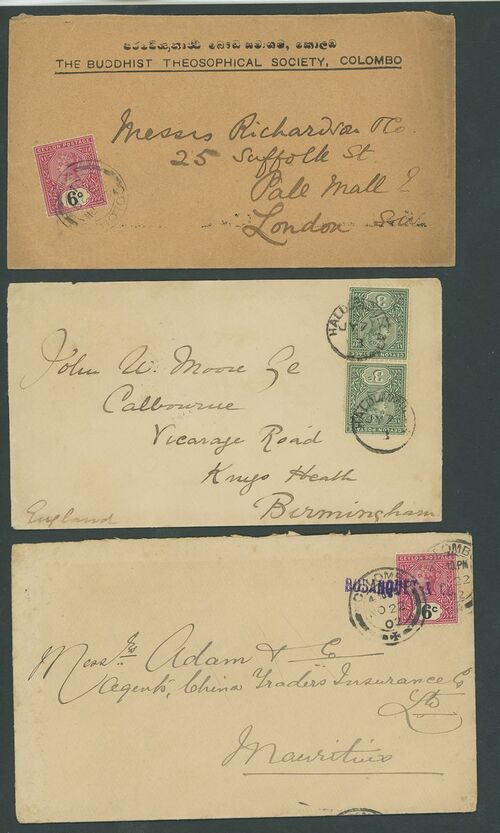 THE BUDDHIST THEOSOPHICAL SOCIETY, COLOMBO
CEYLON POSTAGE
6c
Messrs Richardson & Co.
25 Suffolk St
Pall Mall E
London SW
CEYLON POSTAGE
3c
CEYLON POSTAGE
3c
JY 7
3
JY 7
3
John W. Moore Esq
Calbourne
Vicarage Road
Kings Heath
Birmingham
England
CEYLON POSTAGE
6c
BOSANQUET &
COLOMBO
NO 22
02
COLOMBO
PM
Messrs Adam & Co
Agents, China Traders Insurance Co
Ltd
Mauritius